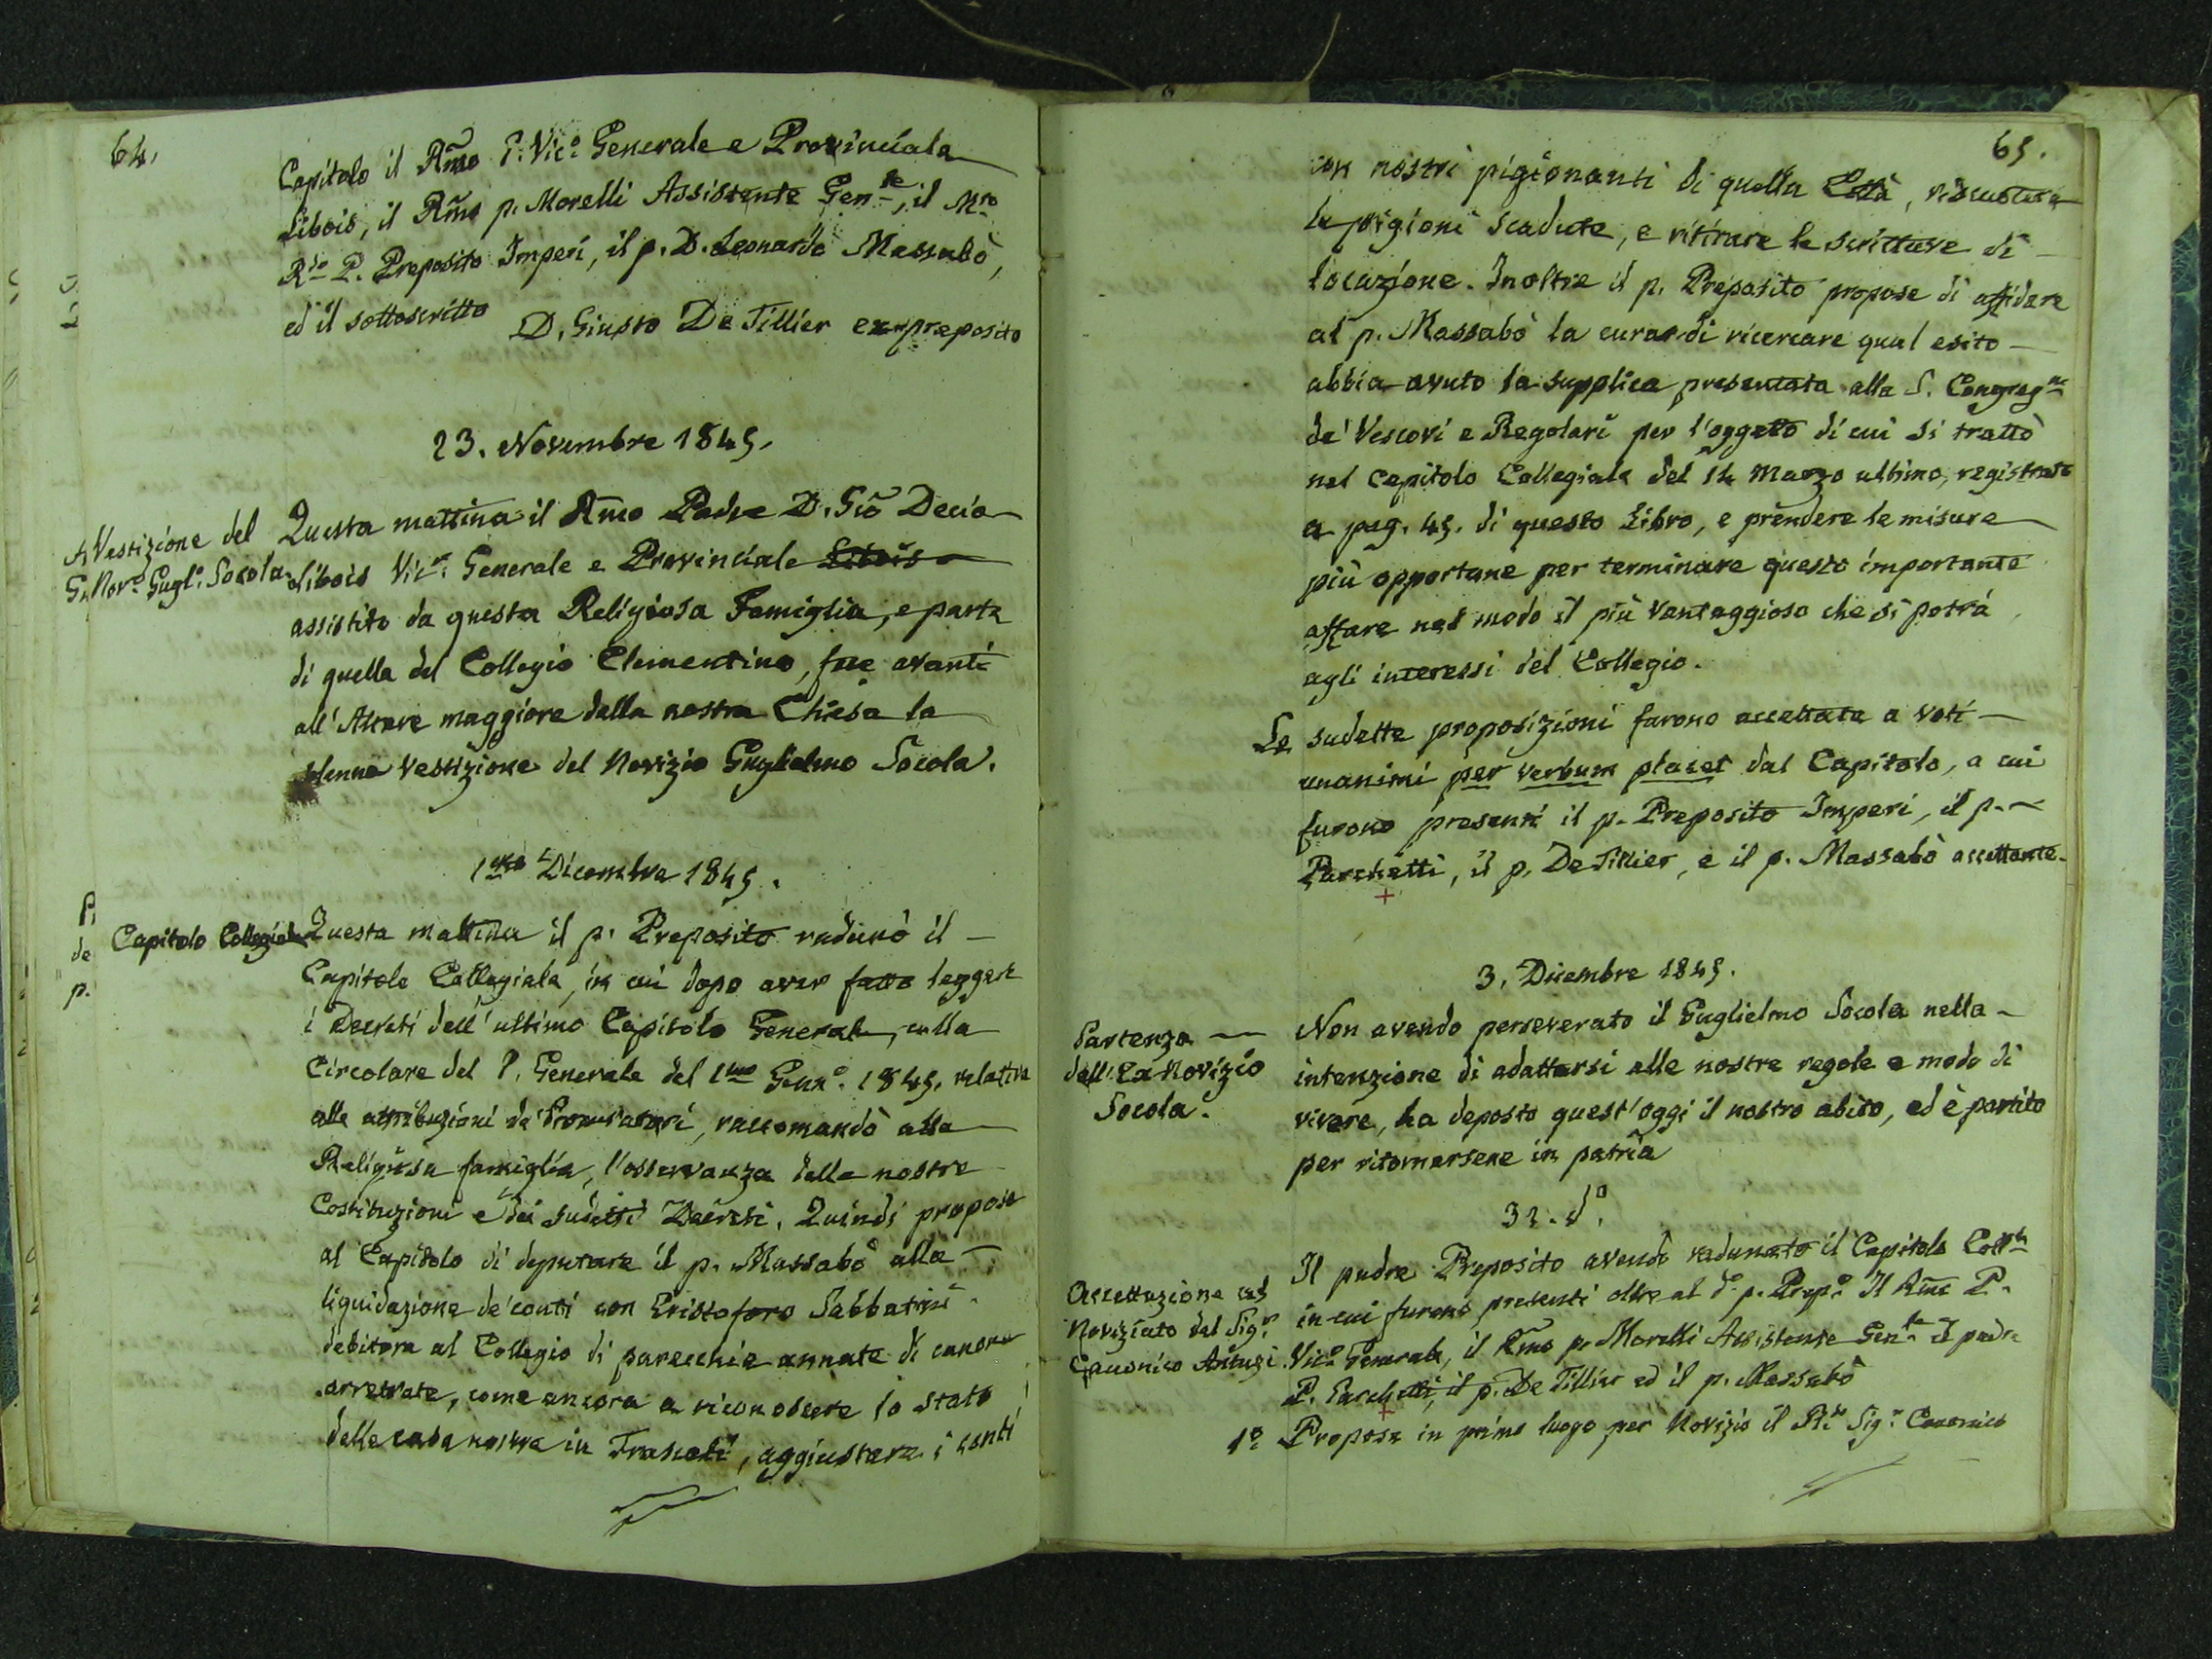 64.
Capitolo il Rm̃o P. Vic.º Generale e Provinciale
Libois, il Rm̃o p. Morelli Assistente Gen.le, il M.to
R.do P. Preposito Imperi, il p. D. Leonardo Massabò,
ed il sottoscritto
D. Giusto De Tillier expreposito
23. Novembre 1845.
Vestizione del
Nov.º Gugl.º Socola.
Questa mattina il Rm̃o Padre D. Giõ Decio
Libois Vic.º Generale e Provinciale Libois
assistito da questa Religiosa Famiglia, e parte
di quella del Collegio Clementino, fece avanti
all'Altare maggiore della nostra Chiesa la
solenne vestizione del Novizio Guglielmo Socola.
1mo Dicembre 1845.
Capitolo Collegiale
Questa mattina il p. Preposito radunò il
Capitolo Collegiale, in cui dopo aver fatto leggere
i Decreti dell'ultimo Capitolo Generale, colla
Circolare del P. Generale del 1mo Genn.º 1845. relativa
alle attribuzioni de' Procuratori, raccomandò alla
Religiosa famiglia, l'osservanza delle nostre
Costituzioni e dei sudetti Decreti. Quindi propose
al Capitolo di deputare il p. Massabò alla
liquidazione de' conti con Cristoforo Sabbatini
debitore al Collegio di parecchie annate di canone
arretrate, come ancora a riconoscere lo stato
delle case nostre in Frascati, aggiustare i conti
65.
con nostri pigionanti di quella Città, riscuotere
le pigioni scadute, e ritirare le scritture di
locazione. Inoltre il p. Preposito propose di affidare
al p. Massabò la cura di ricercare qual esito
abbia avuto la supplica presentata alla S. Congreg.ne
de' Vescovi e Regolari per l'oggetto di cui si trattò
nel Capitolo Collegiale del 14 Marzo ultimo, registrato
a pag. 45. di questo Libro, e prendere le misure
più opportune per terminare questo importante
affare nel modo il più vantaggioso che si potrà
agli interessi del Collegio.
Le sudette proposizioni furono accettate a voti
unanimi per verbum placet dal Capitolo, a cui
furono presenti il p. Preposito Imperi, il p.
Parchetti, il p. De Tillier, e il p. Massabò accettante.
3. Dicembre 1845.
Partenza
dell'Ex Novizio
Socola.
Non avendo perseverato il Guglielmo Socola nella
intenzione di adattarsi alle nostre regole e modo di
vivere, ha deposto quest'oggi il nostro abito, ed è partito
per ritornarsene in patria
d.º
Accettazione al
Noviziato del Sig.r
Canonico
Il padre Preposito avendo radunato il Capitolo Coll.le
in cui furono presenti oltre al d.º p. Prep.º Il Rm̃o P.
Vic.º Generale, il Rm̃o p. Morelli Assistente Gen.le il padre
P. Parchetti, il p. De Tillier ed il p. Massabò
1º Propose in primo luogo per Novizio il Sig.r Canonico